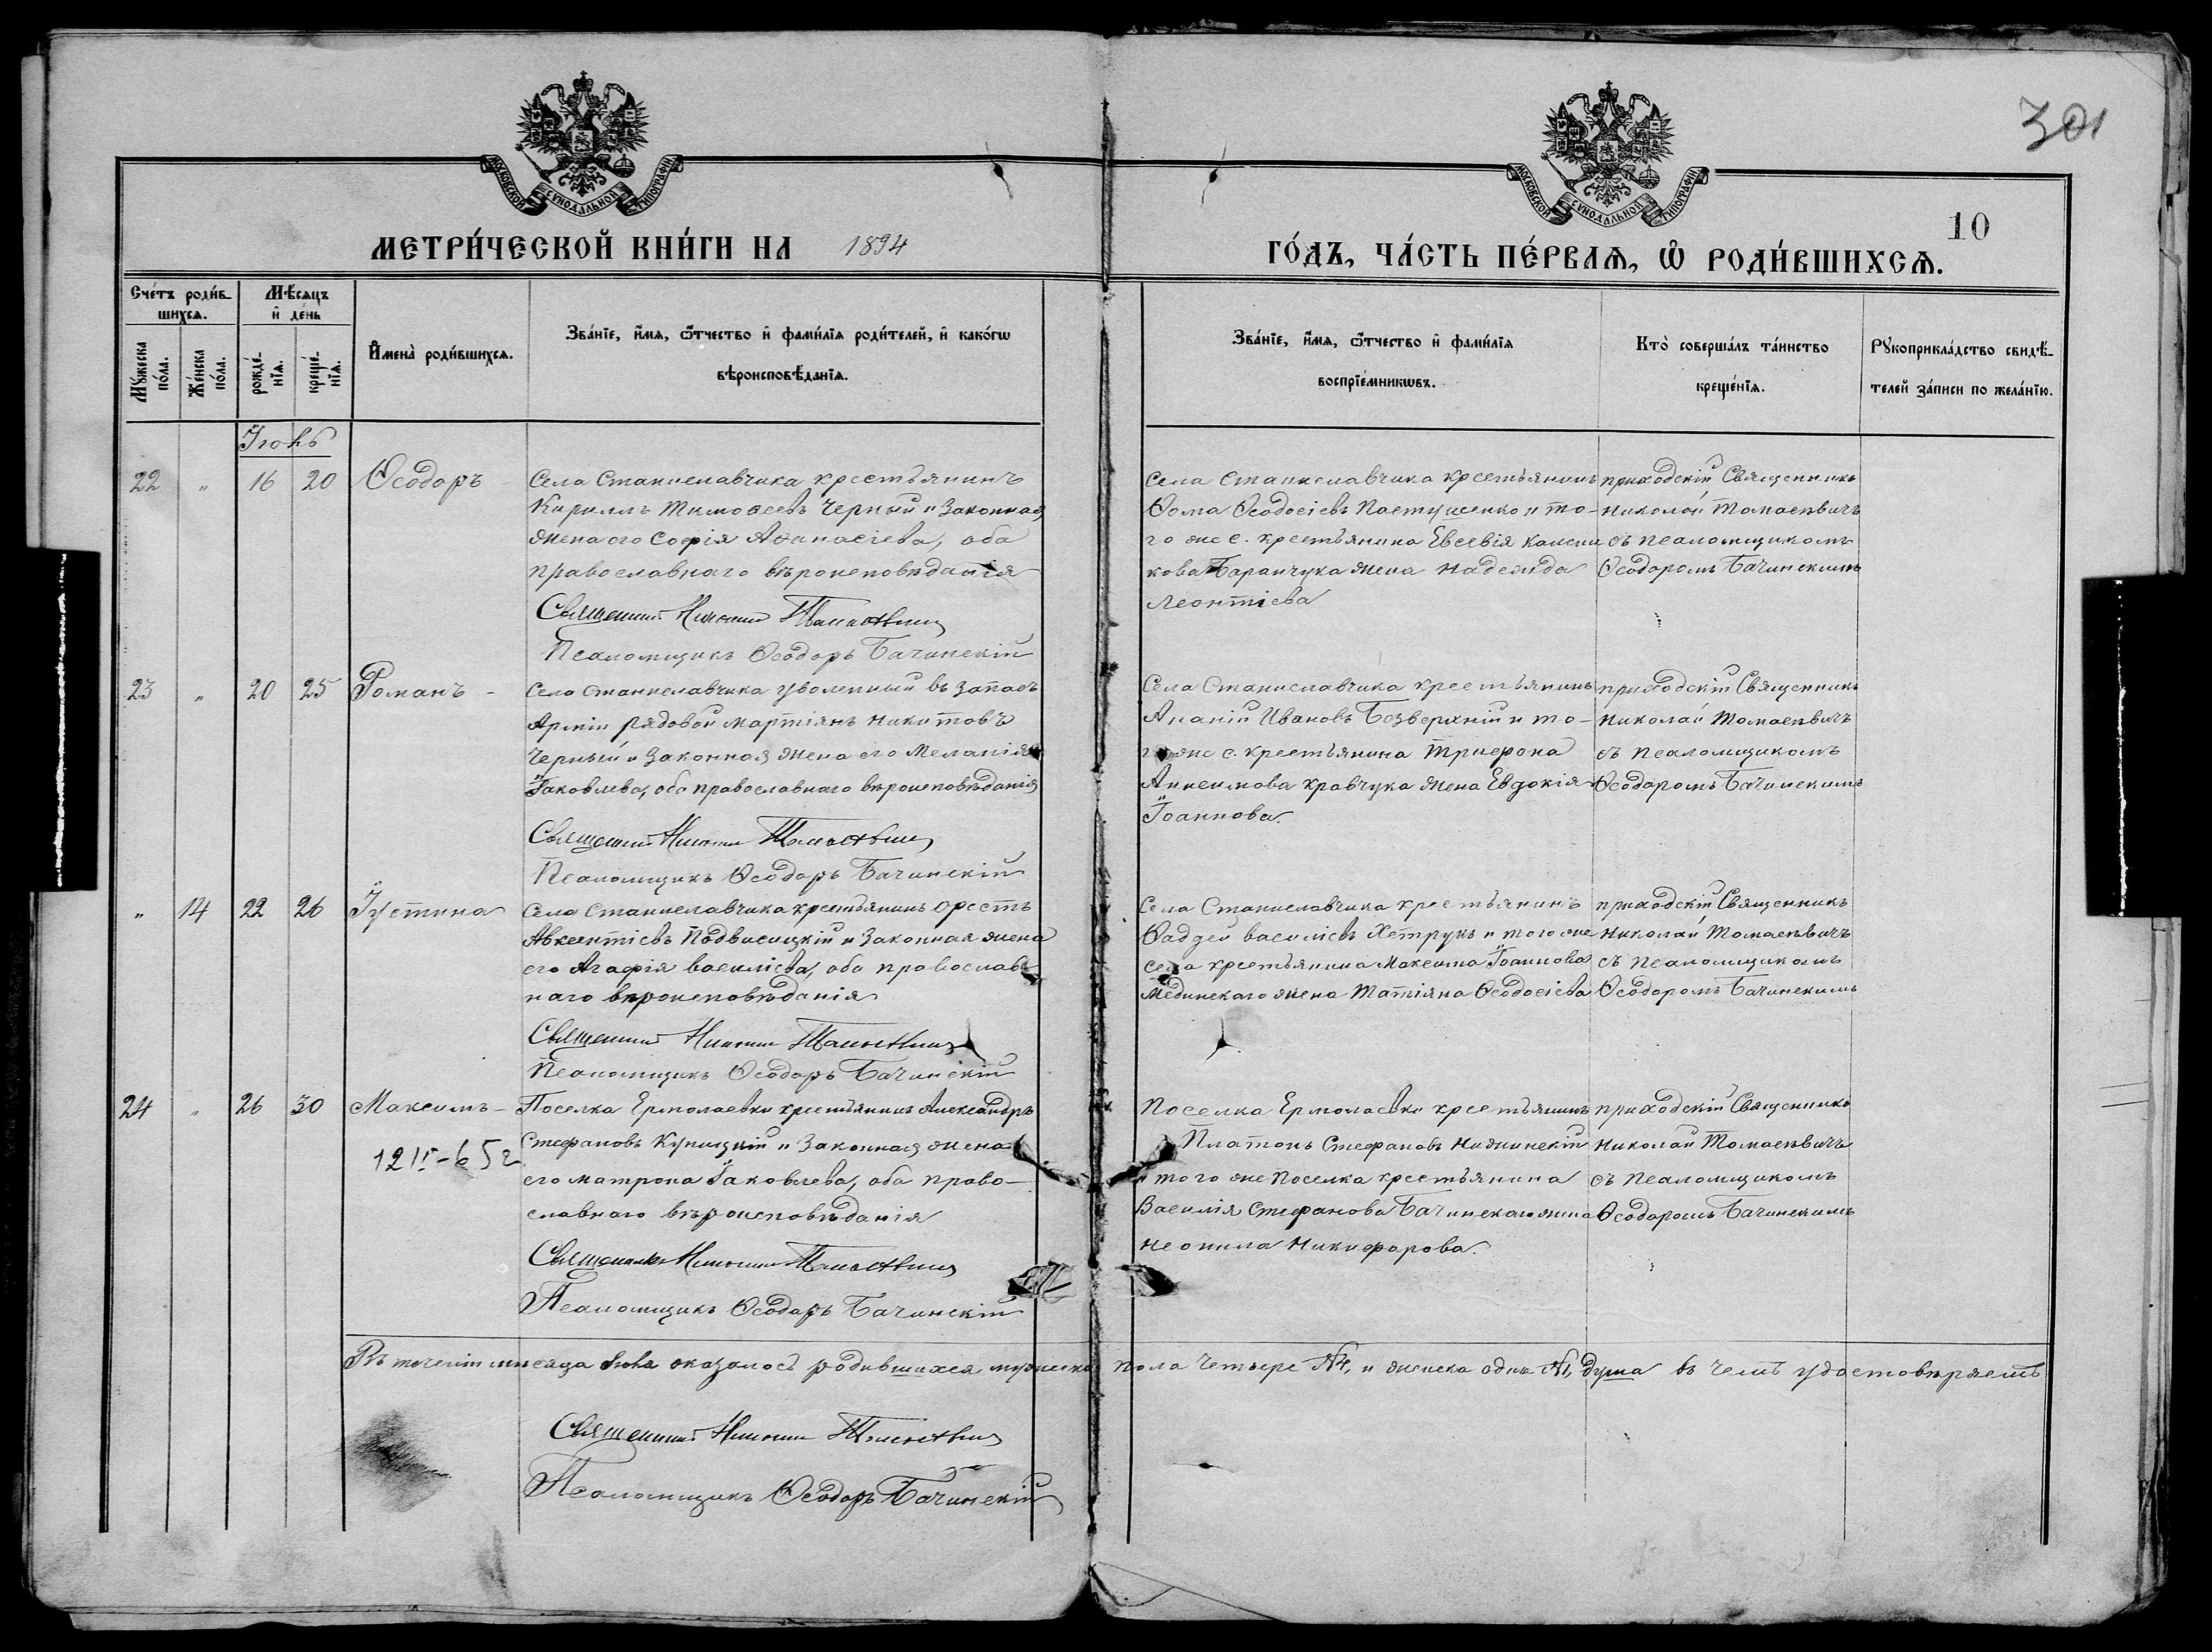 301
10
МОСКОВСКОЙ СѴНОДАЛЬНОЙ ТИПОГРАФІИ
МОСКОВСКОЙ СѴНОДАЛЬНОЙ ТИПОГРАФІИ
МЕТРИ́ЧЕСКОЙ КНИ́ГИ НА 1894
ГО́ДЪ, ЧА́СТЬ ПЕ́РВАѦ, Ѡ҆ РОДИ́ВШИХСѦ.
Сче́тъ роди́в-
шихсѧ.
Мѣ́сѧцъ
и҆ де́нь
Мꙋжеска
по́ла.
Же́нска
по́ла.
рожде́-
нїѧ.
креще́-
нїѧ.
И҆мена̀ роди́вшихсѧ.
Зва́нїе, и҆́мѧ, ѻ҆́тчество и҆ фами́лїѧ роди́телей, и҆ како́гѡ
вѣроисповѣ́данїѧ.
Зва́нїе, и҆́мѧ, ѻ҆́тчество и҆ фами́лїѧ
воспрїе́мникѡвъ.
Кто̀ соверша́лъ та́инство
креще́нїѧ.
Рꙋкоприкла́дство свидѣ́-
телей за́писи по жела́нїю.
Іюнь
22 " 16 20 Ѳеодоръ
Села Станиславчика крестьянинъ
Кириллъ Тимоѳеевъ Черный и законная
жена его Софія Аѳанасіева, оба
православнаго вѣроисповѣданія
Священникъ Николай Томасевичъ
Псаломщикъ Ѳеодоръ Бачинскій
Села Станиславчика крестьянинъ
Ѳома Ѳеодосіевъ Пастушенко и то-
го же с. крестьянина Евсевія
кова Баранчука жена Надежда
Леонтіева
приходскій Священникъ
Николай Томасевичъ
съ псаломщикомъ
Ѳеодоромъ Бачинскимъ
23 " 20 25 Романъ -
Села Станиславчика уволенный въ запасъ
Арміи рядовой Мартіянъ Никитовъ
Черный и законная жена его Меланія
Іаковлева, оба православнаго вѣроисповѣданія
Священникъ Николай Томасевичъ
Псаломщикъ Ѳеодоръ Бачинскій
Села Станиславчика крестьянинъ
Ананій Ивановъ Безверхній и то-
го же с. крестьянина Трифона
Анисимова Кравчука жена Евдокія
Іоаннова.
приходскій Священникъ
Николай Томасевичъ
съ псаломщикомъ
Ѳеодоромъ Бачинскимъ
" 14 22 26 Іустина
Села Станиславчика крестьянинъ Орестъ
Авксентіевъ Подвисоцкій и законная жена
его Агафія Василіева, оба православ
наго вѣроисповѣданія
Священникъ Николай Томасевичъ
Псаломщикъ Ѳеодоръ Бачинскій
Села Станиславчика крестьянинъ
Ѳаддей Василіевъ и того же
села крестьянина Максима Іоаннова
Мединскаго жена Татіяна Ѳеодосіева
приходскій Священникъ
Николай Томасевичъ
съ псаломщикомъ
Ѳеодоромъ Бачинскимъ
24 " 26 30 Максимъ -
12 II - 65 г
Поселка Ермолаевки крестьянинъ Александръ
Стефановъ Куницкій и законная жена
его Матрона Іаковлева, оба право-
славнаго вѣроисповѣданія
Священникъ Николай Томасевичъ
Псаломщикъ Ѳеодоръ Бачинскій
Поселка Ермолаевки крестьянинъ
Платонъ Стефановъ и
того же поселка крестьянина
Василія Стефанова Бачинскаго жена
Неонила Никифорова.
приходскій Священникъ
Николай Томасевичъ
съ псаломщикомъ
Ѳеодоромъ Бачинскимъ
Въ теченіи мѣсяца Іюня оказалось родившихся мужеска пола четыре №4, и женска одна №1, душа въ чемъ удостовѣряемъ
Священникъ Николай Томасевичъ
Псаломщикъ Ѳеодоръ Бачинскій